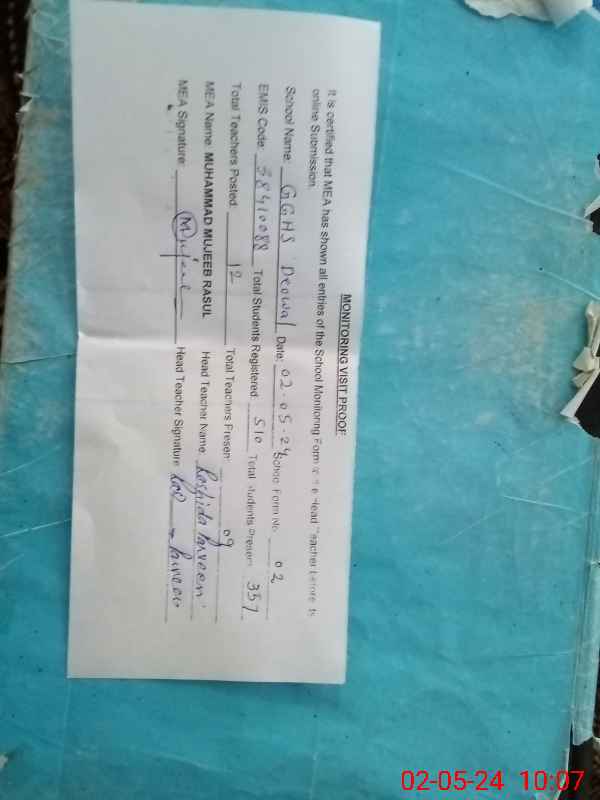 MONITORING VISIT PROOF
It is certified that MEA has shown all entries of the School Monitoring Form to the Head Teacher before its
online Submission.
School Name: GGHS Deowal Date: 02.05.24 School Form No. 02
EMIS Code: 38410088 Total Students Registered: 510 Total Students Present: 357
Total Teachers Posted: 12 Total Teachers Present: 09
MEA Name: MUHAMMAD MUJEEB RASUL Head Teacher Name: Rashida Parveen
MEA Signature: Mujeeb Head Teacher Signature
02-05-24 10:07